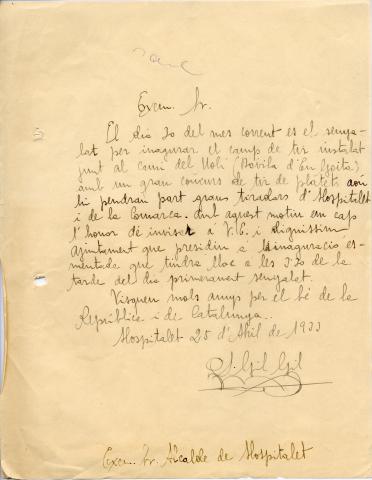 Excm. Sr.
El dia 30 del mes corrent es el senya-
lat per inagurar el camp de tir instalat
junt al cami del (Bovila d'En Goita)
amb un gran concurs de tir de platets aón
hi pendran part grans tiradors d'Hospitalet
i de la Comarca. Amb aquest motiu em cap
l'honor de invitar á V.E. i dignissim
Ajuntament que presidiu a la inaguracio es-
mentada que tindra lloc a les 3'30 de la
tarde del dia primerament senyalat.
Visqueu molts anys per el bé de la
República i de Catalunya.
Hospitalet 25 d'Abril de 1933
J. Gil Gil
Excm. Sr. Alcalde de Hospitalet